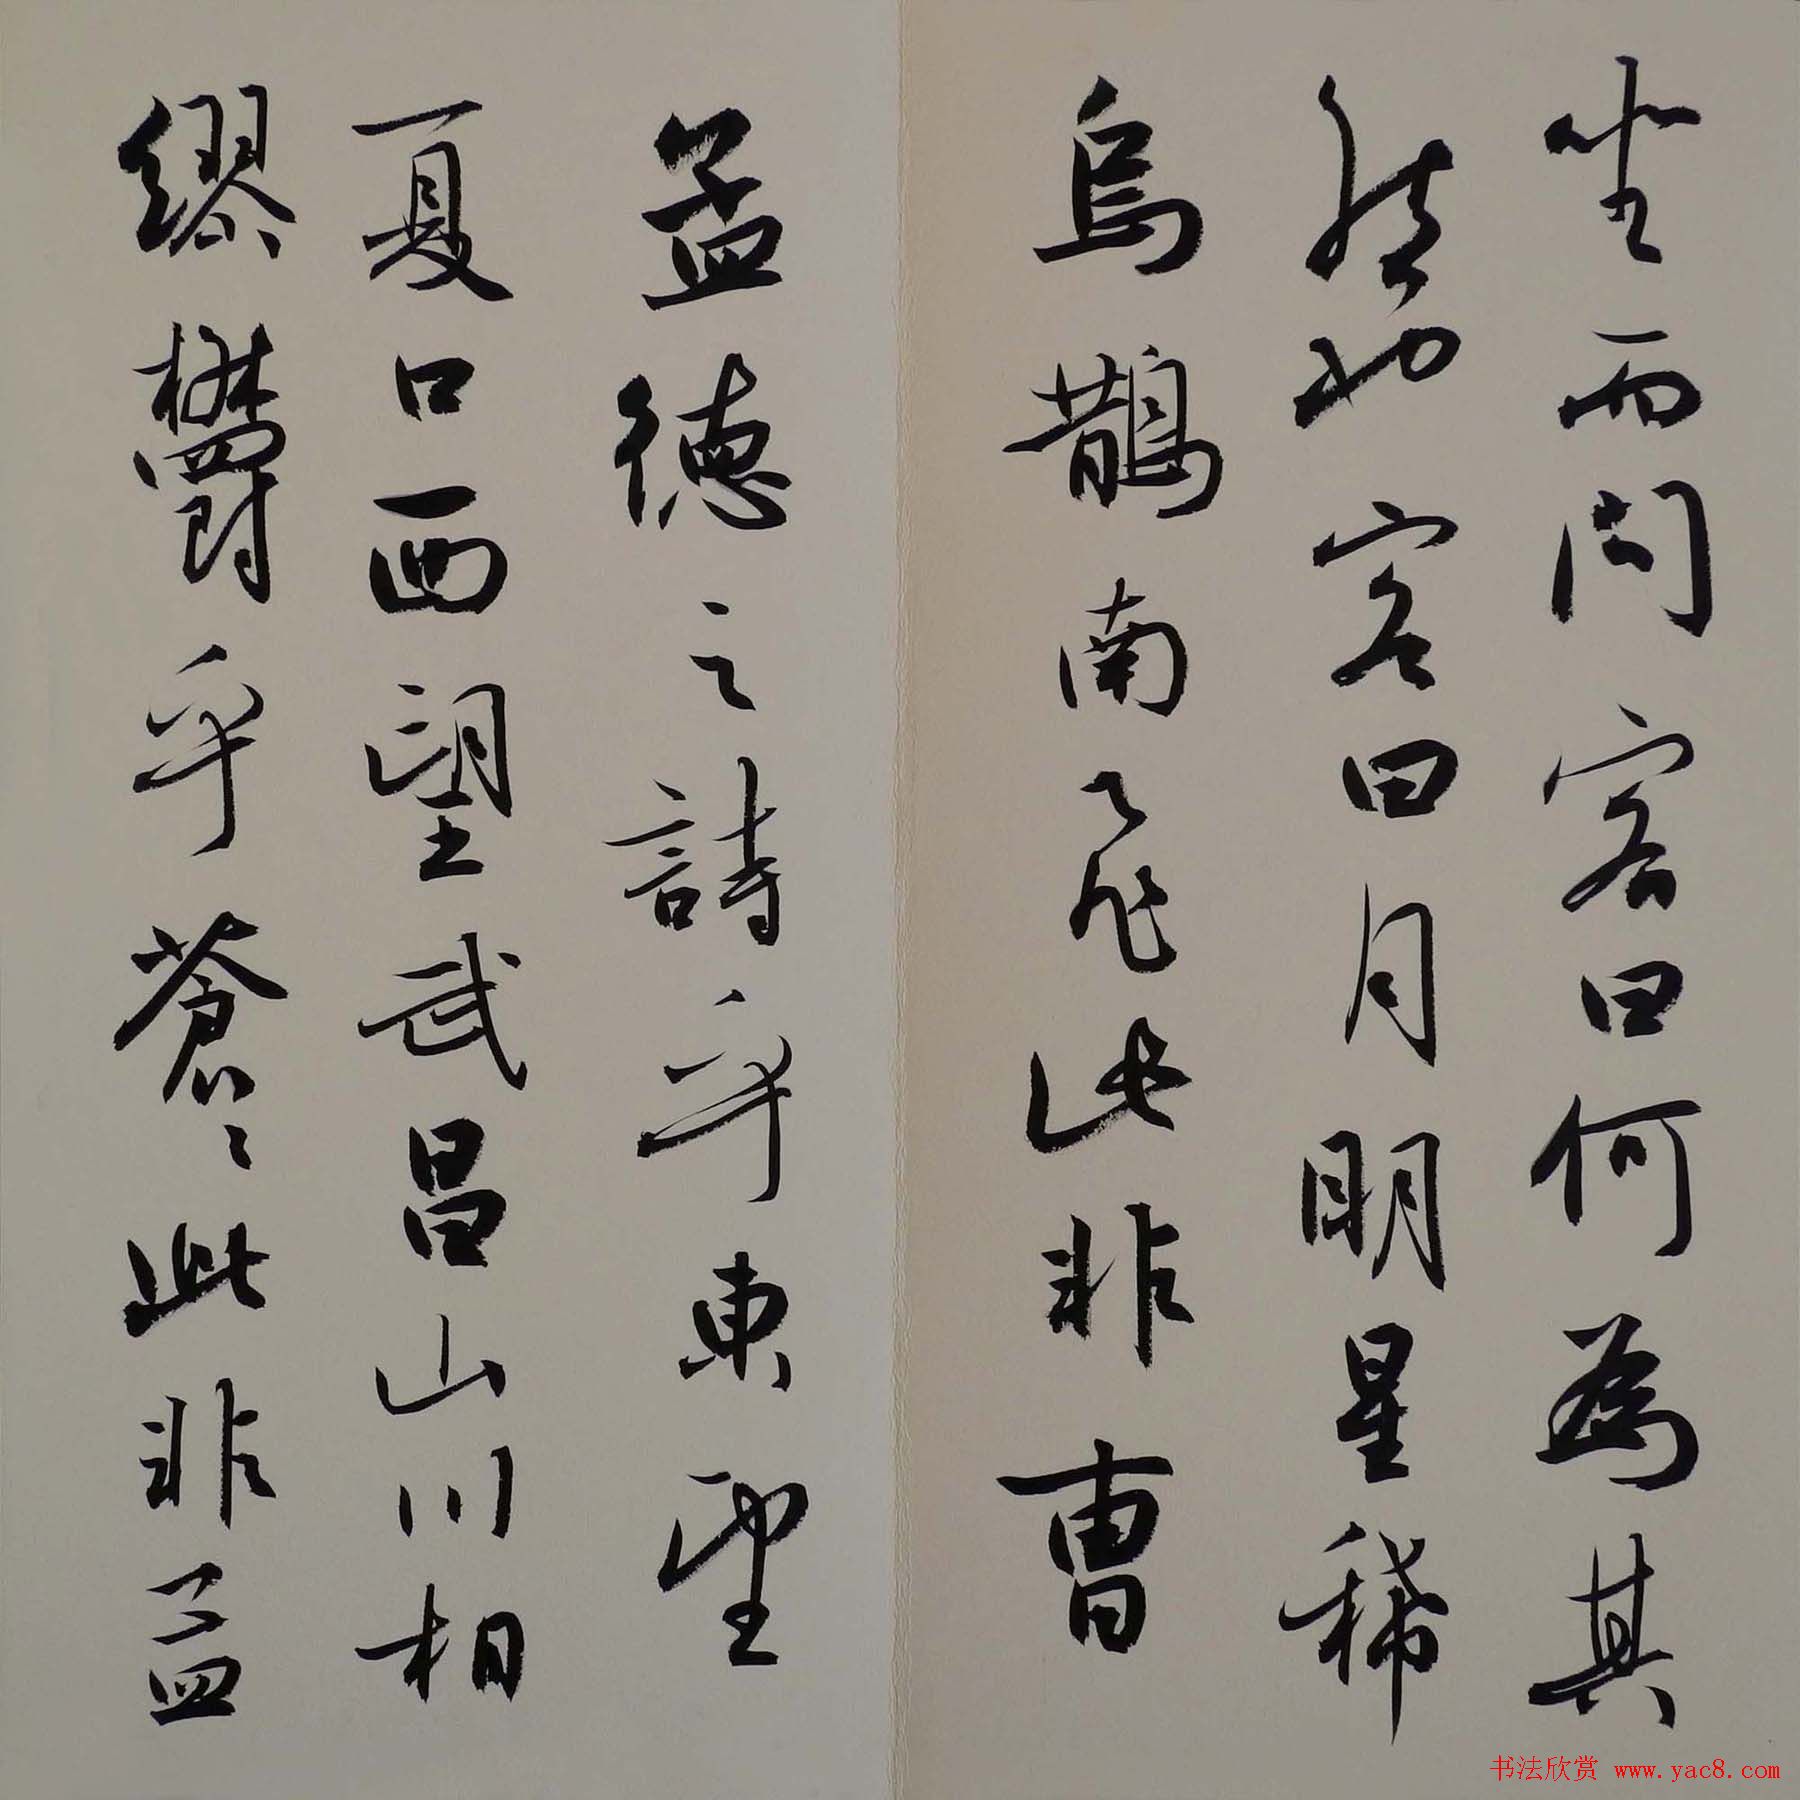 坐而問客曰何為其
然也客曰月明星稀
烏鵲南飛此非曹
孟德之詩乎東望
夏口西望武昌山川相
繆鬱乎蒼〻此非孟
书法欣赏 www.yac8.com